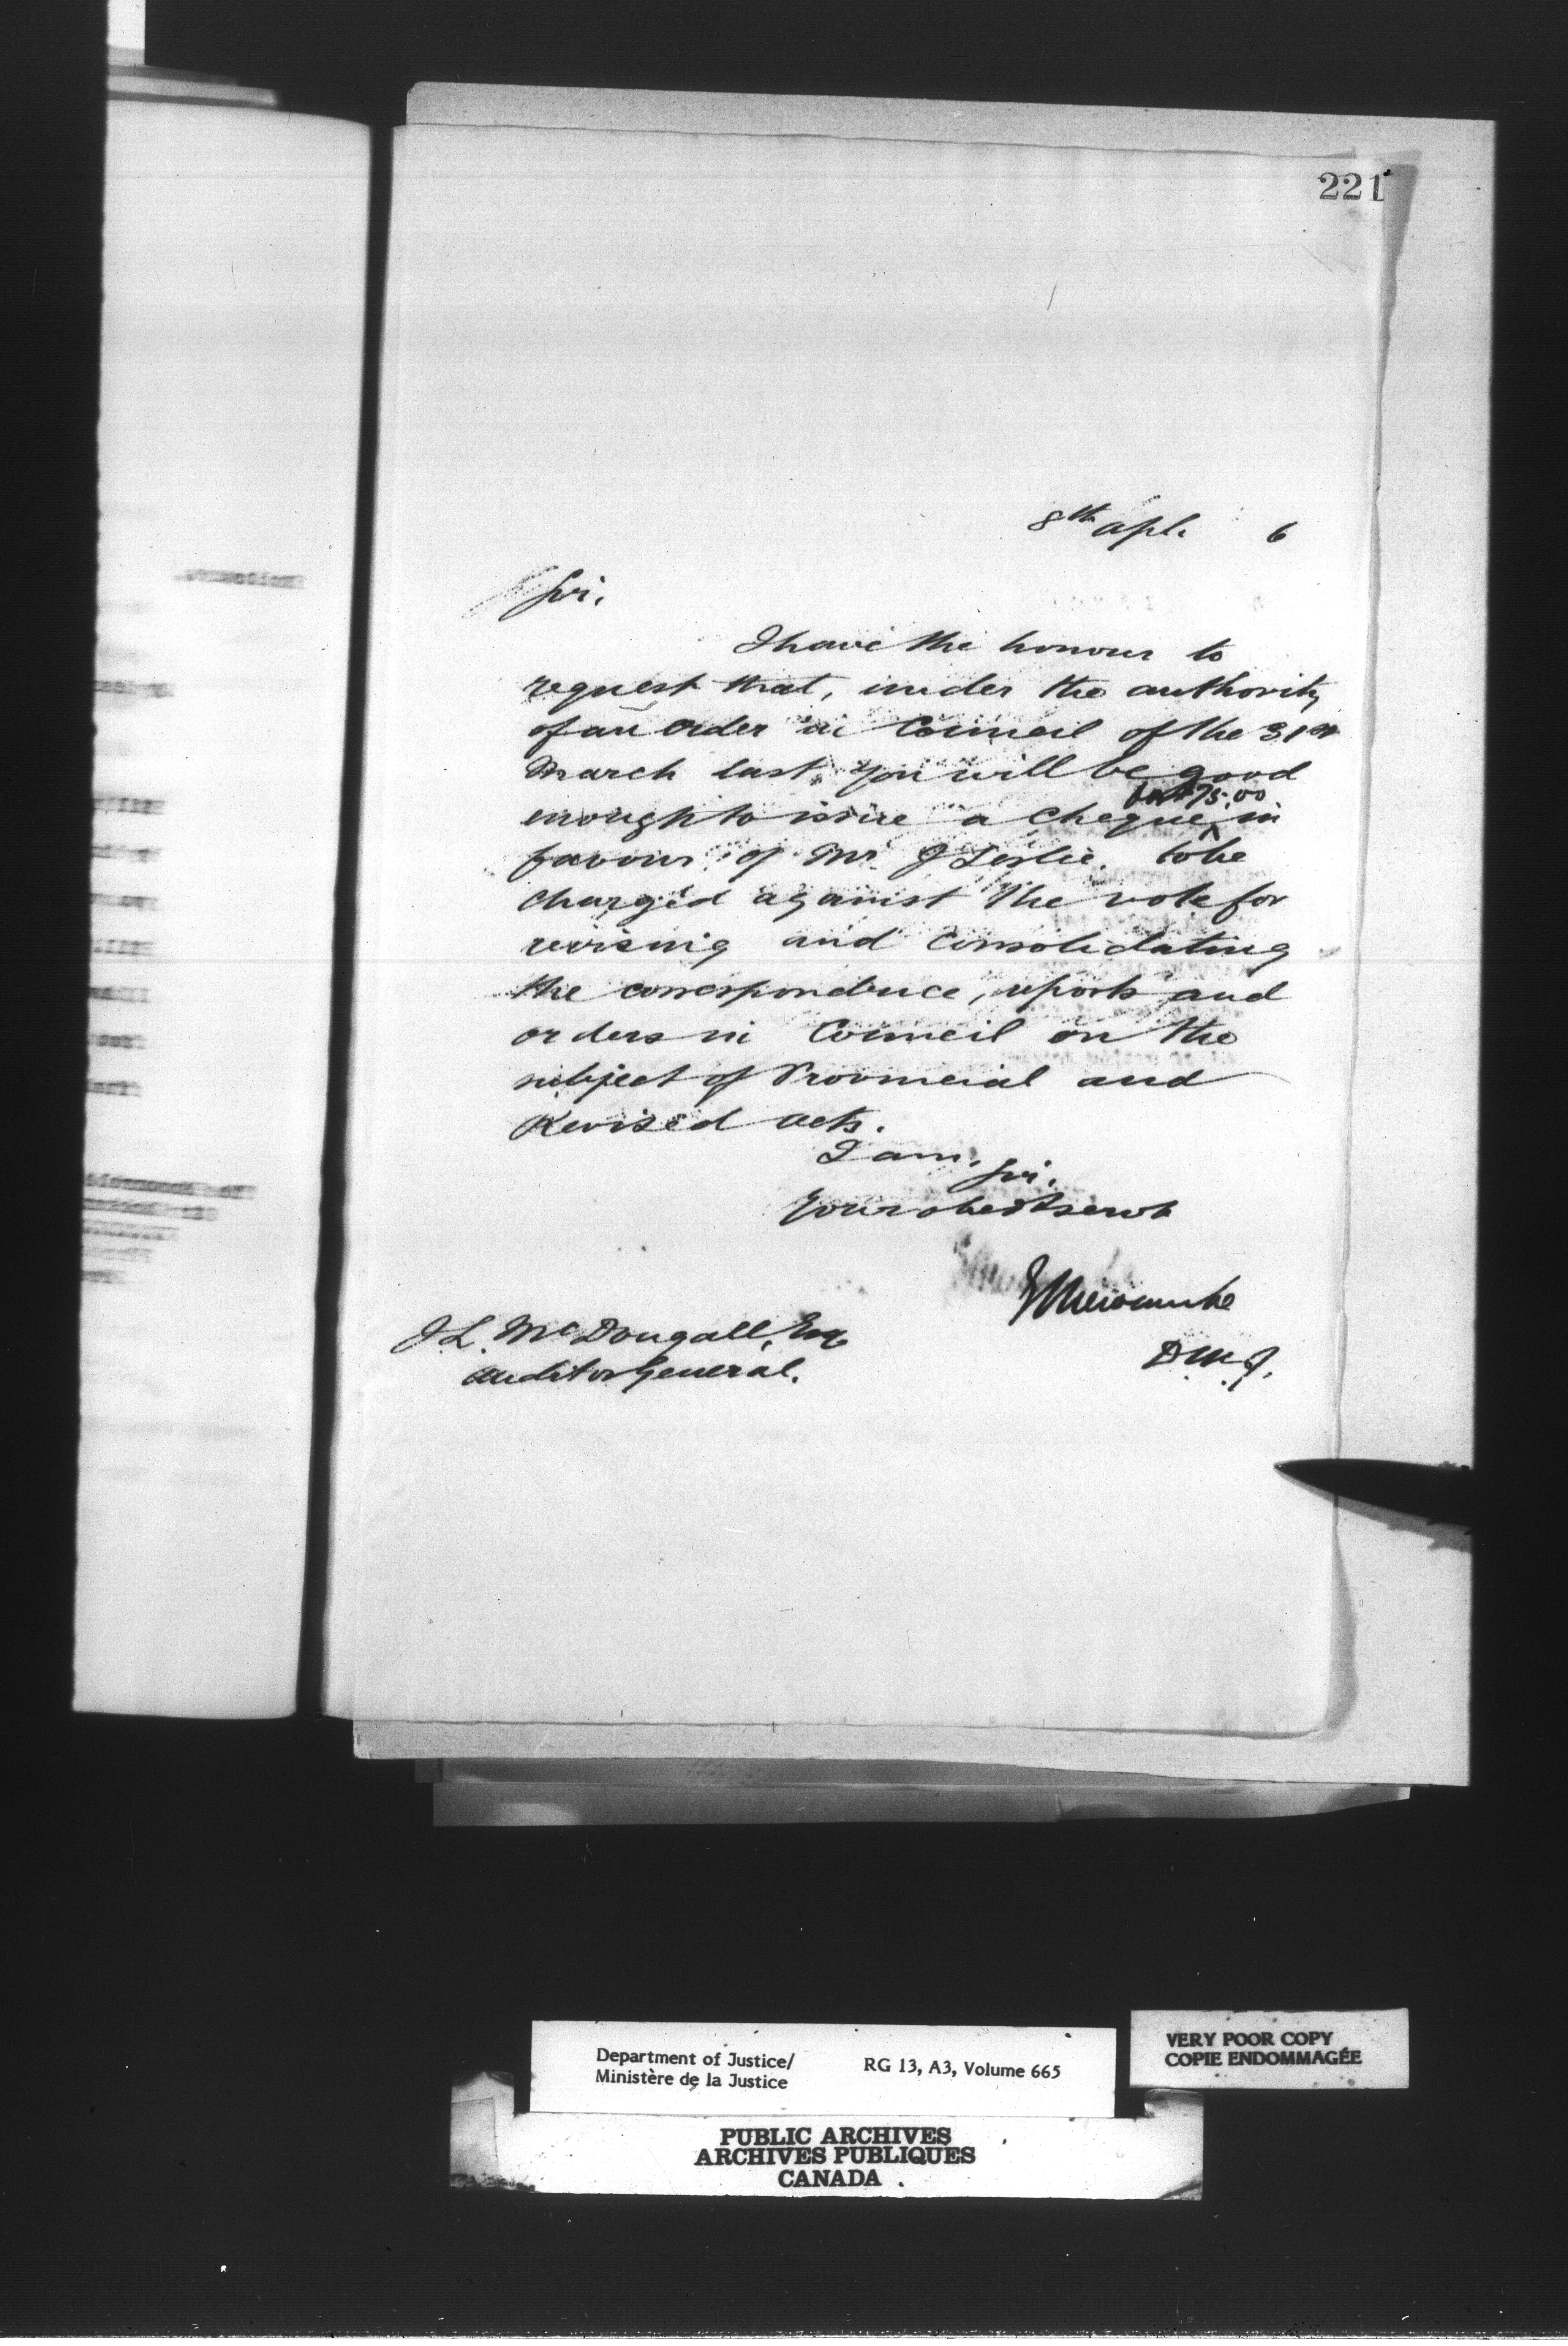 221
8th Apl. 6
Sir,
I have the honour to
request that, under the authority
of an Order in Council of the 31st
March last, you will be good
for $75.00
enough to issue a cheque ^ in
favour of Mr J Leslie. to be
charged against the vote for
revising and consolidating
the correspondence, reports and
orders in Council on the
subject of Provincial and
Revised acts.
I am,
Sir,
Your obedt servt
E L Newcombe
D.M.J.
J.L. McDougall, Esq
Auditor General.
Department of Justice/
Ministère de la Justice
RG 13, A3, Volume 665
VERY POOR COPY
COPIE ENDOMMAGÉE
PUBLIC ARCHIVES
ARCHIVES PUBLIQUES
CANADA